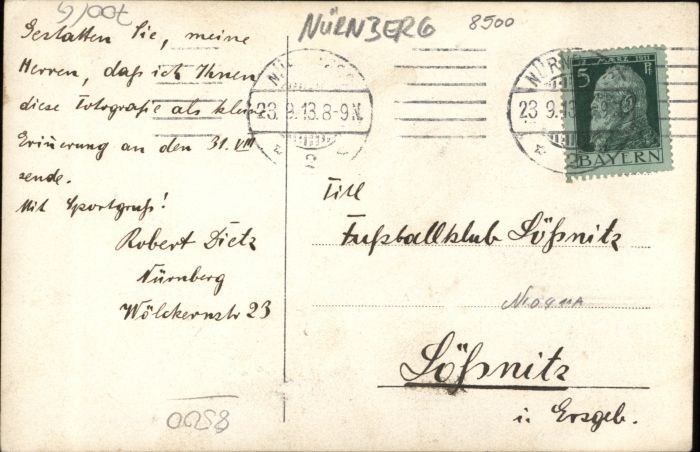 NÜRNBERG 8500
Gestatten Sie, meine
Herren, daß ich Ihnen
diese Fotografie als klein
Erinerung an den 31. VIII
sende.
Mit Sportgruß!
Robert Dietz
Nürnberg
Wölckernstr 23
23.9.13.8-9N.
2
NÜRN
23 9.13
2
12. MÄRZ 1911
5 Pf
BAYERN
Titl
Fußballklub Lößnitz
Lößnitz
i. Ersgeb.
8500